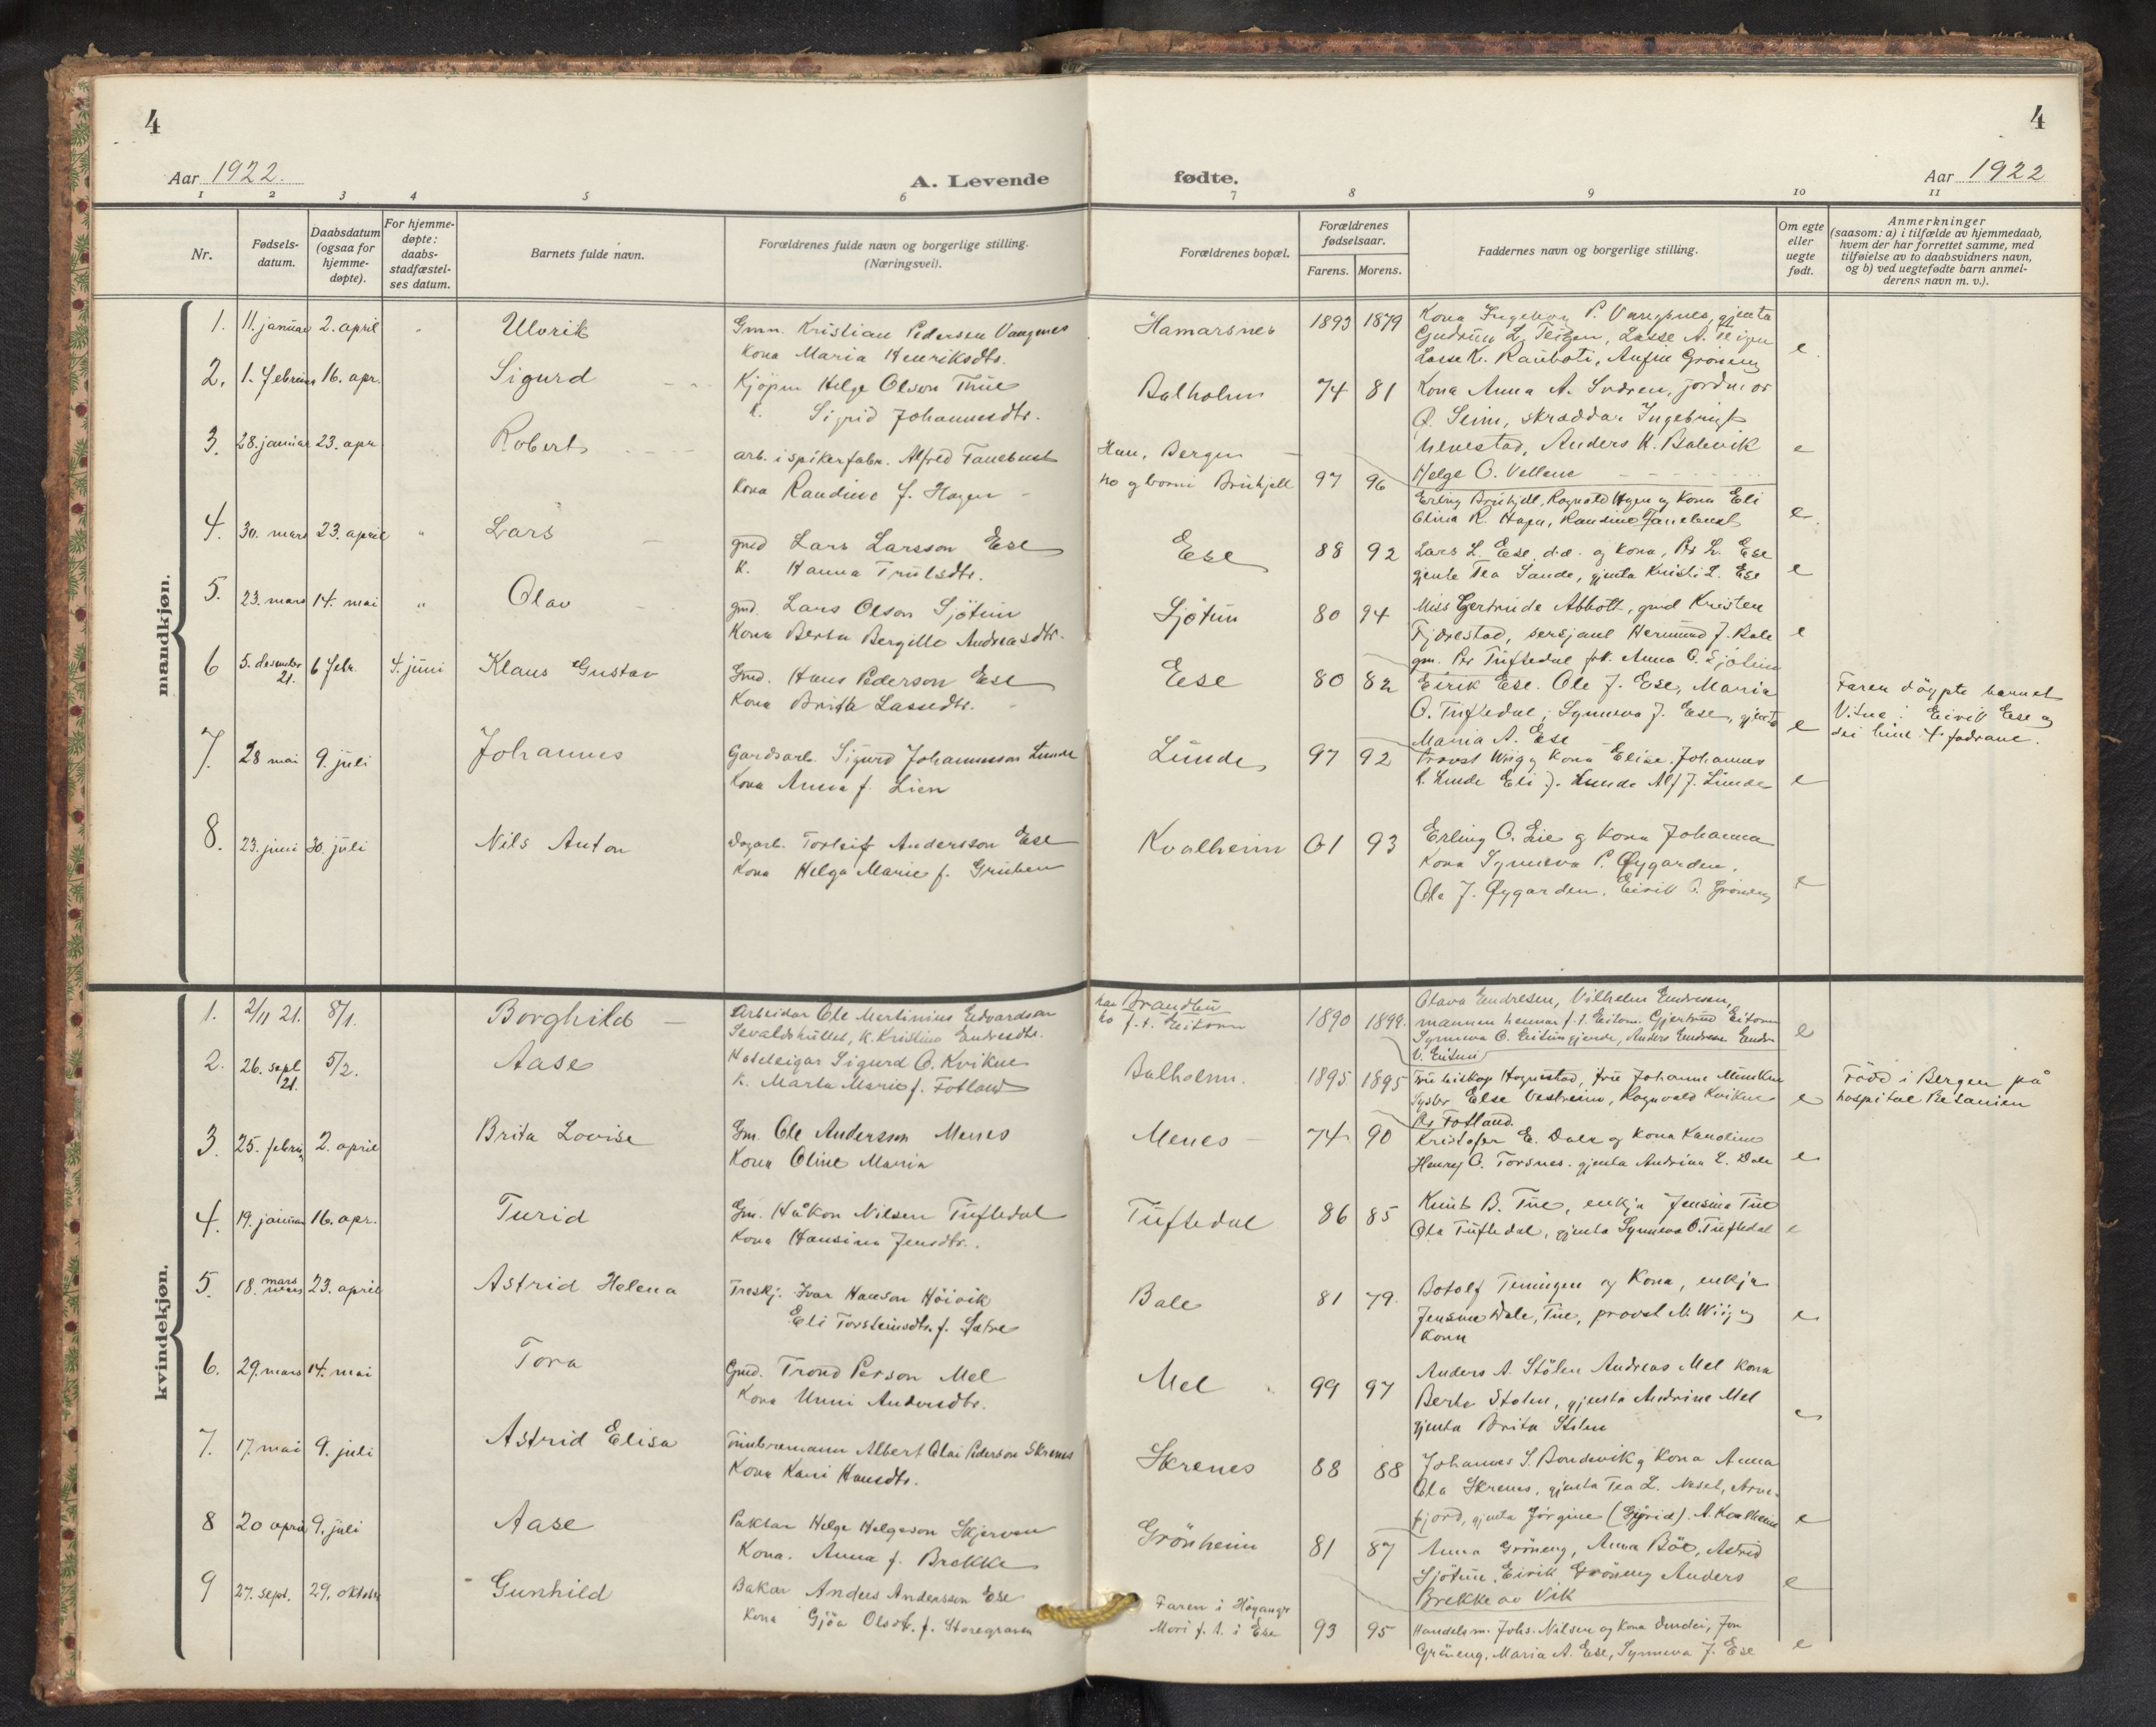 4
4
Aar 1922.
A. Levende
fødte.
Aar 1922
1 2 3 4 5 6 7 8 9 10 11
Nr.
Fødsels-
datum.
Daabsdatum
(ogsaa for
hjemme-
døpte).
For hjemme-
døpte:
daabs-
stadfæstel-
ses datum.
Barnets fulde navn.
Forældrenes fulde navn og borgerlige stilling.
(Næringsvei).
Forældrenes bopæl.
Forældrenes
fødselsaar.
Farens. Morens.
Faddernes navn og borgerlige stilling.
Om egte
eller
uegte
født.
Anmerkninger
(saasom: a) i tilfælde av hjemmedaab,
hvem der har forrettet samme, med
tilføielse av to daabsvidners navn,
og b) ved uegtefødte barn anmel-
derens navn m. v.).
mandkjøn.
1. 11. januar 2. april " Ulvrik
Gmn. Kristian Pedersen Vangsnes
Kona Maria Henriksdtr.
Hamarsnes 1893 1879
Kona Ingeborg P. Vangsnes, gjenta
Gudrun L. Teigen, Lasse A. Teigen
Lasse K. Rauboti, Aufin Gröneng
e
2. 1. februar 16. apr. Sigurd
Kjöpm Helge Olson Thue
K. Sigrid Johannesdtr.
Balholm 74 81
Kona Anna A. Sværen, jordmor
O. Seim, skræddar Ingebrigt
Anders K. Balevik
Helge O. Vellene
e
3. 28. januar 23. apr Robert
arb. i spikerfabr. Alfred Fanebust
Kona Randine f. Hagen
Han, Bergen
ho og borni Bruhjell 97 96
Erling Bruhjell, Rognald Hagen og Kona Eli
Olina R. Hagen, Randine Fanebust
e
4. 30. mars 23. april " Lars
gmd Lars Larsson Ese
K. Hanna Trulsdtr.
Ese 88 92
Lars L. Ese d.e. og kona, Per L. Ese
gjenta Tea Sande, gjenta Kristi L. Ese
e
5. 23. mars 14. mai " Olav
gmd. Lars Olson Sjötun
Kona Berta Bergitte Andreasdtr.
Sjötun 80 94
Miss Gertrude Abbott, gmd Kristen
Fjærestad, sersjant Hermund J. Bale
gm. Per Tuftedal, frk. Anna O. Sjötun
e
6 5. desember 21. 6 febr. 4. juni Klaus Gustav
Gmd. Hans Pederson Ese
Kona Britha Lassedtr.
Ese 80 82
Eirik Ese. Ole J. Ese, Maria
O. Tuftedal, Synneva J. Ese, gjenta
Maria A. Ese
e
Faren döypte barnet
Vitne: Eirik Ese og
dei hine 4 fadrane.
7. 28 mai 9. juli Johannes
Gardsarb. Sigurd Johannesson Lunde
Kona Anna f. Lien
Lunde 97 92
Provst Wiig og Kona Elise. Johannes
S. Lunde Eli J. Lunde Alf J. Lunde
e
8. 23. juni 30. juli Nils Anton
Dagarb. Torleif Andersson Ese
Kona Helga Marie f. Gruben
Kvalheim 01 93
Erling O. Lie og kona Johanna
Kona Synneva P. Øygarden,
Ola J. Øygarden. Eirik P. Gröneng
e
kvindekjøn.
1. 2/11 21. 8/1. Borghild
Arbeidar Ole Martinius Edvardsen
Sevaldshullet, K. Kristine Endresdtr.
han Brandbu
ho f.t. Eitorn 1890 1899.
Olava Endresen, Vilhelm Endresen,
mannen hennar f.t. Eitorn. Gjertrud Eitorn
Synneva O. Eitun gjenta, Anders Endresen Endre
V. Eitun
e
2. 26. sept 21. 5/2. Aase
Hoteleigar Sigurd O. Kvikne
K. Marta Marie f. Fotland
Balholm. 1895 1895
Frue biskop Hognestad, frue Johanne
Syster Else Vestreim, Rognvald Kvikne
Per Fotland.
e
Född i Bergen på
hospital Betanien
3. 25. febru. 2. april Brita Lovise
Gm. Ole Andersson Menes
Kona Oline Maria
Menes 74 90
Kristofer E. Dale og kona Karoline
Henrey O. Torsnes. gjenta Andrina L. Dale
e
4. 19. januar 16. apr. Turid
Gm. Håkon Nilsen Tuftedal
Kona Hansina Jensdtr.
Tuftedal 86 85
Knut B. Tue, enkja Jensina Tue
Ola Tuftedal, gjenta Synneva O. Tuftedal
e
5. 18. mars 23. april Astrid Helena
Treskj. Ivar Hanson Höivik
Eli Torsteinsdtr. f. Sætre
Bale 81 79.
Botolf Teningen og Kona, enkja
Jensine Dale, Tue, provst N. Wiig og
Kona
e
6. 29. mars 14. mai Tora
Gmd. Trond Person Mel
Kona Unni Andersdtr.
Mel 99 97
Anders A. Stölen Andreas Mel Kona
Berta Stolen, gjenta Andrine Mel
gjenta Brita Stölen
e
7. 17. mai 9. juli Astrid Elisa
Tömbremann Albert Olai Pederson Skrenes
Kona Kari Hansdtr.
Skrenes 88 88
Johannes S. Bondevik og kona Anna
Ola Skrenes, gjenta Tea L. Neset, Arne-
fjord, gjenta Jørgine (Gjörid). A. Kvalheim
e
8 20 april 9. juli Aase
Paktar Helge Helgeson Skjerven
Kona. Anna f. Brekke
Grönheim 81 87
Anna Gröneng, Anna Böe, Astrid
Sjötun, Eirik Gröneng Anders
Brekke av Vik
e
9 27. sept. 29. oktober Gunhild
Bakar Anders Andersson Ese
Kona Gjöa Olsdtr. f. Storegraven
Faren i Höyanger
Mori f. t. i Ese 93 95
Handelsm. Johs. Nilsen og kona Dundei, Jon
Gröneng, Maria A. Ese, Synneva J. Ese
e